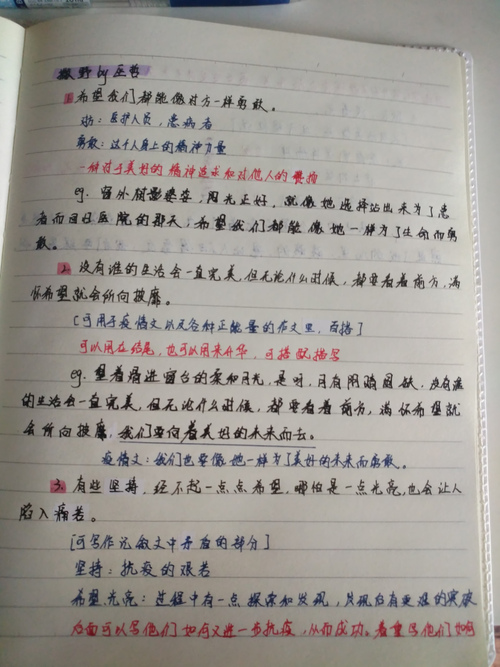 撒野 by 巫哲
1.希望我们都能像对方一样勇敢。
对方：医护人员，患病者
勇敢：这个人身上的精神力量
一种对于美好的精神追求和对他人的
eg. 窗外树影婆娑，阳光正好，就像她选择站出来为了患
者而回归医院的那天，希望我们都能像她一样为了生命而勇
敢。
2. 没有谁的生活会一直完美，但无论什么时候，都要看着前方，满
怀希望就会所向披靡。
[可用于疫情文以及各种正能量的作文里，百搭]
可以用在结尾，也可以用来升华，可搭配描写
eg. 望着滑进窗台的柔和月光，是呀，月有阴晴圆缺，没有谁
的生活会一直完美，但无论什么时候，都要看着前方，满怀希望就
会所向披靡，我们要向着美好的未来而去。
疫情文：我们也要像她一样为了美好的未来而勇敢。
3. 有些坚持，经不起一点点希望，哪怕是一点光亮，也会让人
陷入痛苦。
[可写作记叙文中矛盾的部分]
坚持：抗疫的艰苦
希望，光亮：过程中有一点探索和发现，只现后有更难的突破
后面可以写他们如何又进一步抗疫，从而成功。着重写他们如何